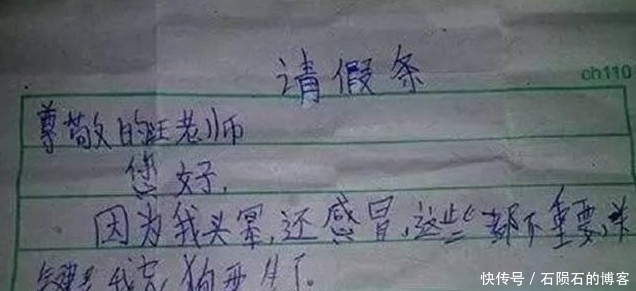 请假条
ch110
尊敬的旺老师
您好,
因为我头晕,还感冒,这些都不重要,关
键是我家狗要生了。
快传号/石陨石的博客